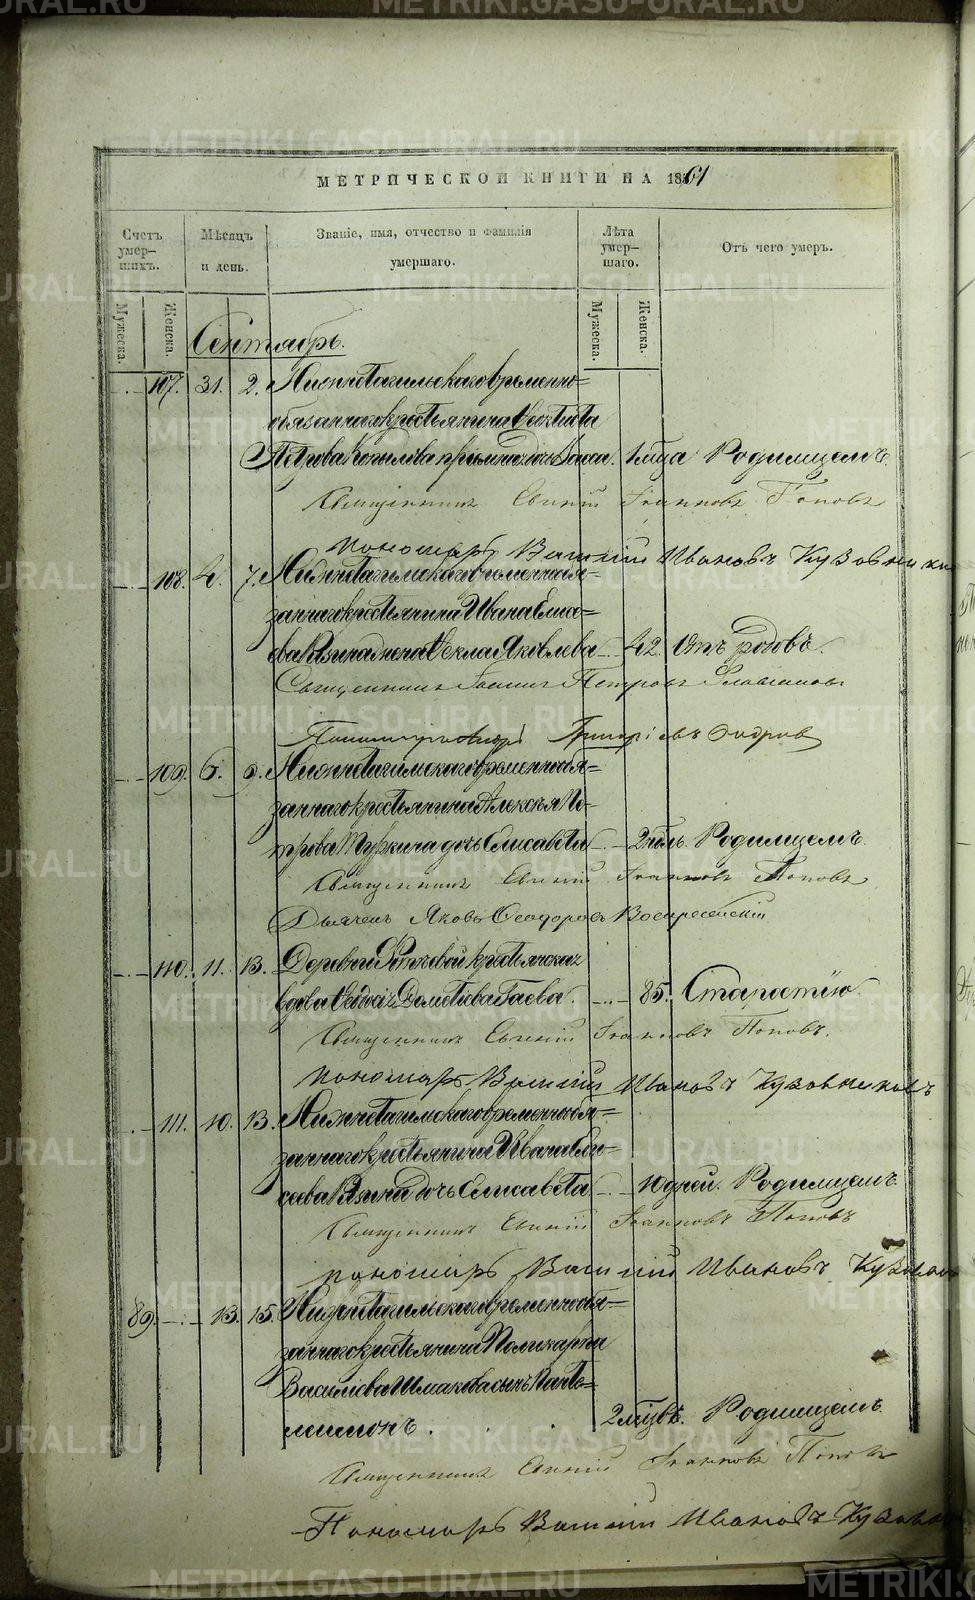 METRIKI.GASO-URAL.RU
МЕТРИЧЕСКОЙ КНИГИ НА 1861
Счетъ умер-шихъ.
Мѣсяцъ и день.
Званіе, имя, отчество и фамилія умершаго.
Лѣта умер-шаго.
Отъ чего умеръ.
Мужеска.
Женска.
Мужеска.
Женска.
Сентябрь.
107. 31. 2. Нижнетагильскаго временно=
обязаннаго крестьянина Ѳеоктиста
Петрова Копылова дочь 1 мѣсца Родимцемъ.
Священникъ Евгеній Іоанновъ Поповъ
Пономарь Василій Ивановъ Кузовников
108. 4. 7. Нижнетагильскаго временнообя=
заннаго крестьянина Ивана Елисѣ=
ева жена Ѳекла Яковлева 42 Отъ родовъ.
Священникъ Іоаннъ Петровъ
Григорій
109. 6. 9. Нижнетагильскаго временнообя=
заннаго крестьянина Алексѣя Пе=
трова дочь Елисавета 2 нѣдль. Родимцемъ.
Священникъ Евгеній Іоанновъ Поповъ
Дьячекъ Яковъ Ѳеодоровъ Воскресенскій
110. 11. 13. Деревни крестьянская
вдова Дометіева Гаева. 85. Старостію
Священникъ Евгеній Іоанновъ Поповъ.
Пономарь Василій Ивановъ Кузовниковъ
111. 10. 13. Нижнетагильскаго временнообя=
заннаго крестьянина Ивана Ели=
сѣева дочь Елисавета 10 дней. Родимцемъ.
Священникъ Евгеній Іоанновъ Поповъ
Пономарь Василій Ивановъ Кузовник
89. 13. 15. Нижнетагильскаго временнообя=
заннаго крестьянина Поликарпа
Василіева Шмакова сынъ Панте=
леимонъ. 2 мѣсцъ. Родимцемъ.
Священникъ Евгеній Іоанновъ Поповъ
Пономарь Василій Ивановъ Кузовник